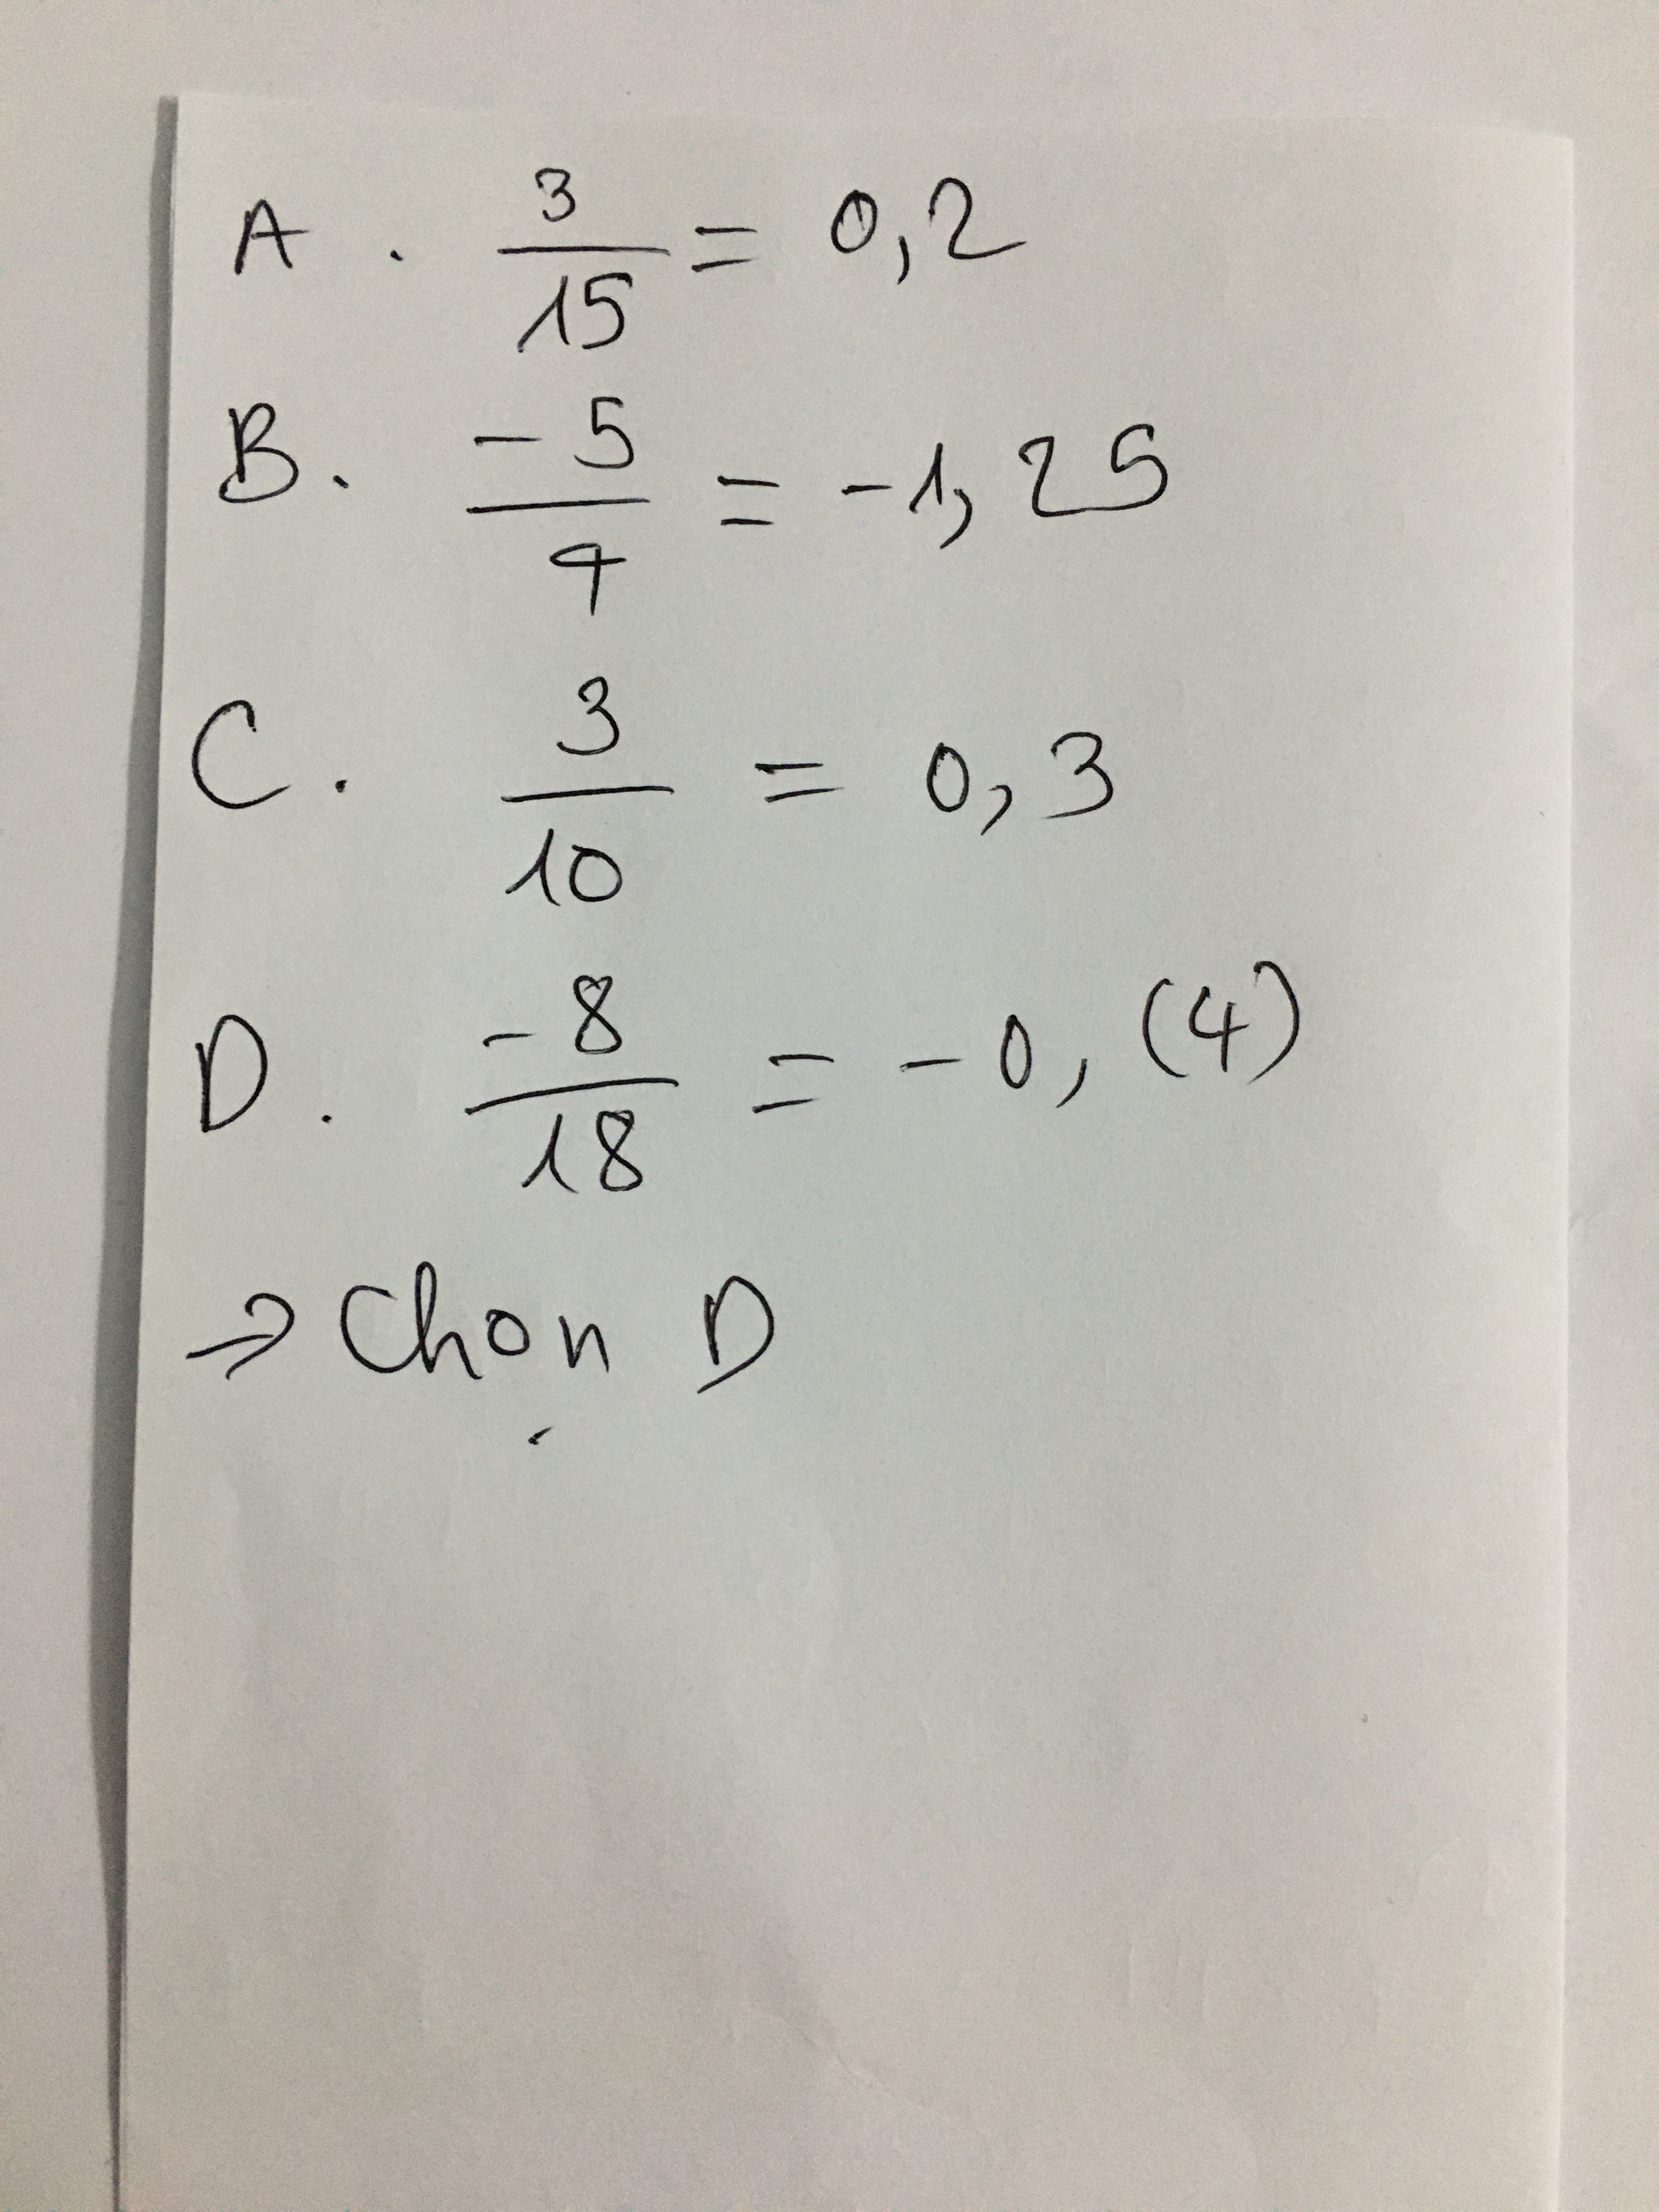 A. 3/15 = 0,2
B. -5/4 = -1,25
C. 3/10 = 0,3
D. -8/18 = -0,(4)
⇒ Chọn D